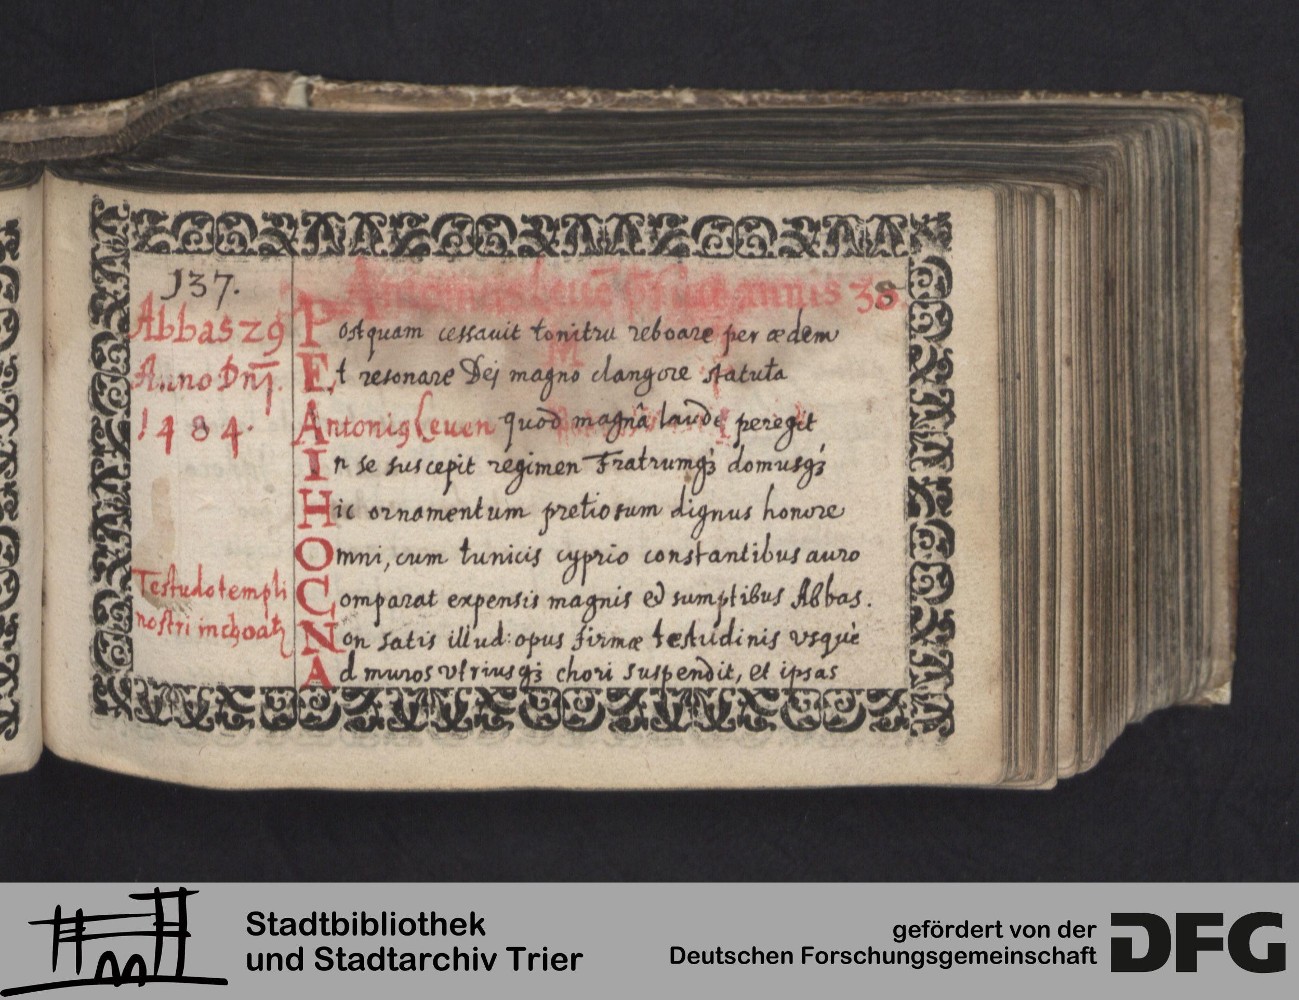 137.
Abbas 29
Anno Dnī.
1484.
Testudo templi
nostri inchoatꝛ
38
Postquam cessauit tonitru reboare per ædem
Et resonare Dej magno clangore statuta
Antoniꝰ Leuen quod magnâ laude peregit
In se suscepit regimen Fratrumqꝫ domusqꝫ
Hic ornamentum pretiosum dignus honore
Omni, cum tunicis cyprio constantibus auro
Comparat expensis magnis & sumptibus Abbas.
Non satis illud: opus firmæ testudinis vsquè
Ad muros vtriusqꝫ chori suspendit, et ipsas
Stadtbibliothek
und Stadtarchiv Trier
gefördert von der
Deutschen Forschungsgemeinschaft
DFG